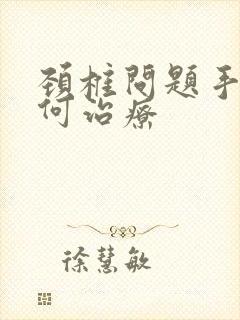 頚椎問題手
何治療
徐慧敏